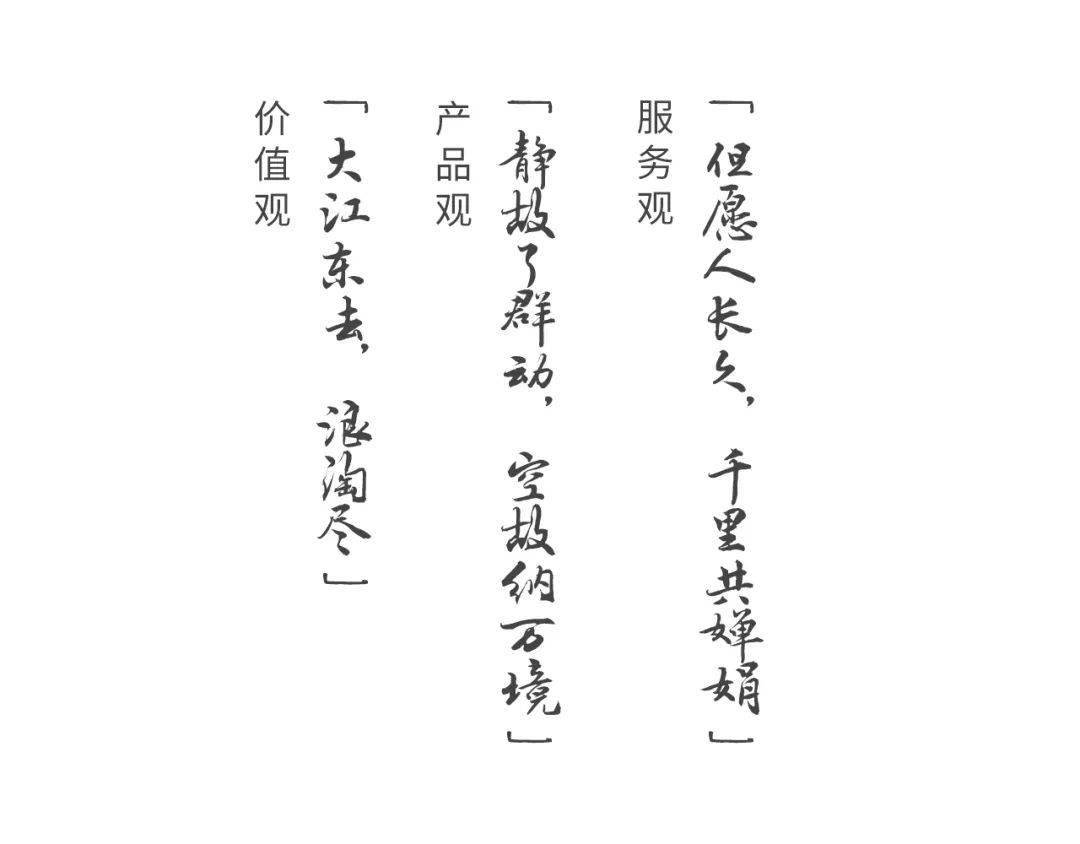 服务观
「但愿人长久，千里共婵娟」
产品观
「静故了群动，空故纳万境」
价值观
「大江东去，浪淘尽」